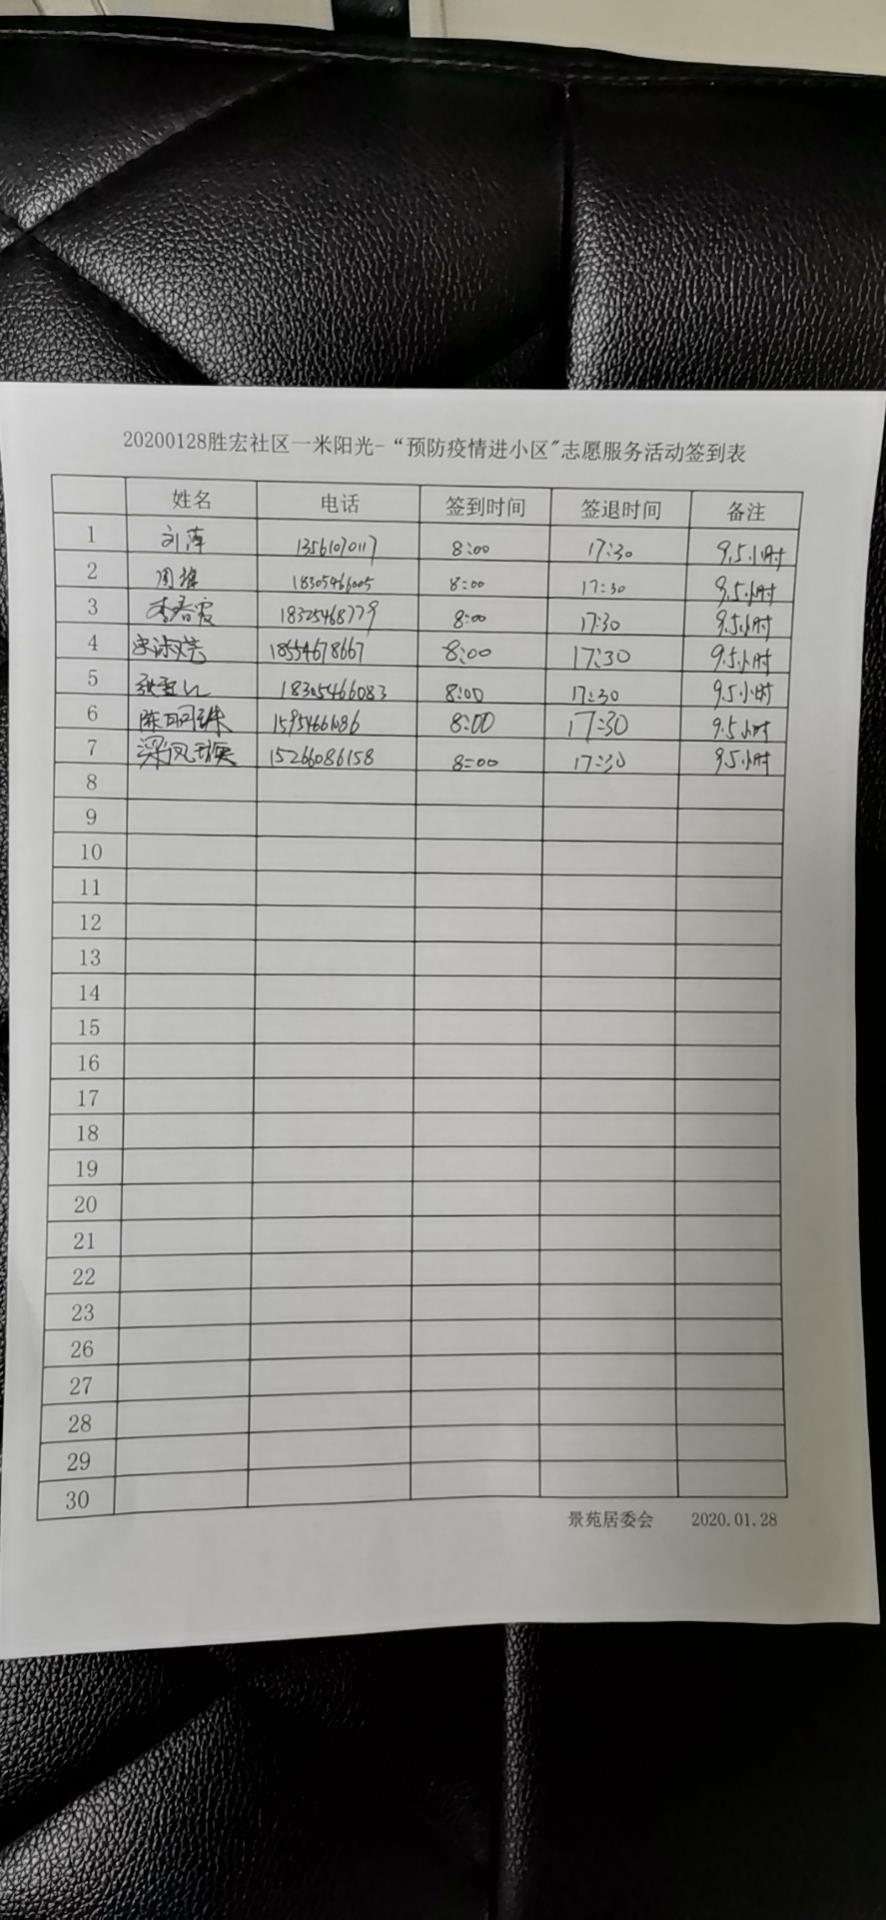 20200128胜宏社区一米阳光-“预防疫情进小区"志愿服务活动签到表
姓名 电话 签到时间 签退时间 备注
1 刘萍 13561070117 8:00 17:30 9.5小时
2 周 18305466005 8:00 17:30 9.5小时
3 李春霞 18325468779 8:00 17:30 9.5小时
4 18554678667 8:00 17:30 9.5小时
5 18305466083 8:00 17:30 9.5小时
6 陈明珠 8:00 17:30 9.5小时
7 梁凤 15266086158 8:00 17:30 9.5小时
8
9
10
11
12
13
14
15
16
17
18
19
20
21
22
23
26
27
28
29
30
景苑居委会 2020.01.28